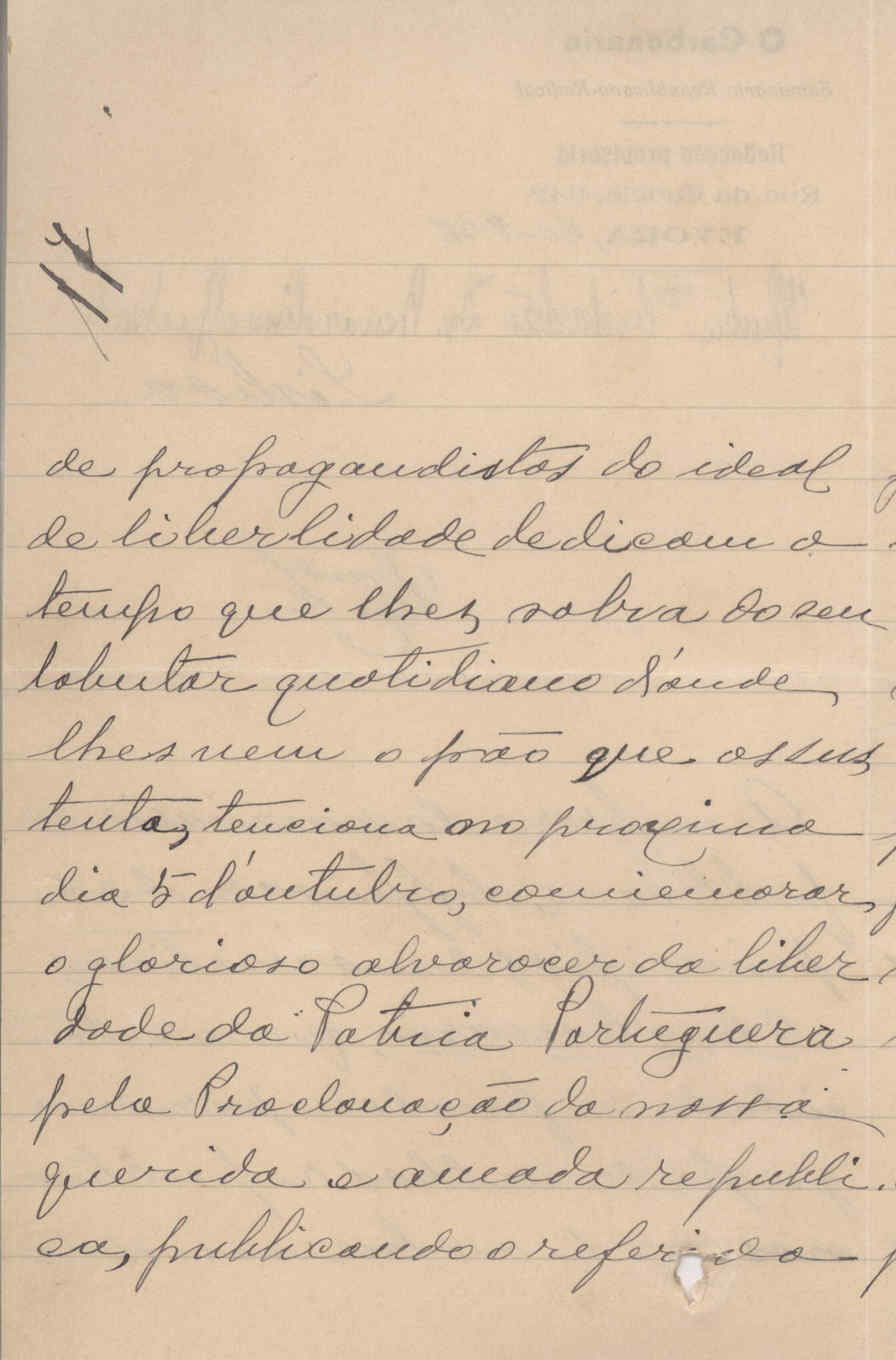 de propagandistas do ideal
de liberlidade dedicam o
tempo que lhes sobra do seu
labutar quotidiano d'onde
lhes vem o pão que os sus
tenta, tenciona no proximo
dia 5 d'outubro, comemorar
o glorioso alvorocer da liber
dade da Patria Portugueza
pela Proclamação da nossa
querida e amada republi
ca, publicando o referido